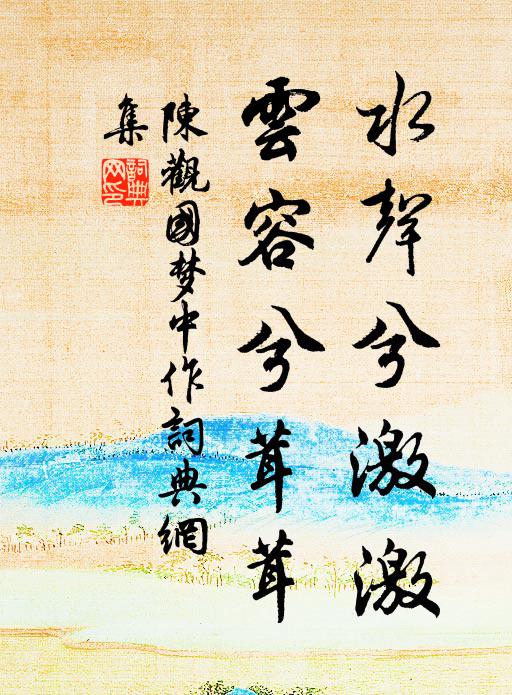 水聲兮激激
雲容兮茸茸
陳觀國梦中作詞典網
集
詞典
网印